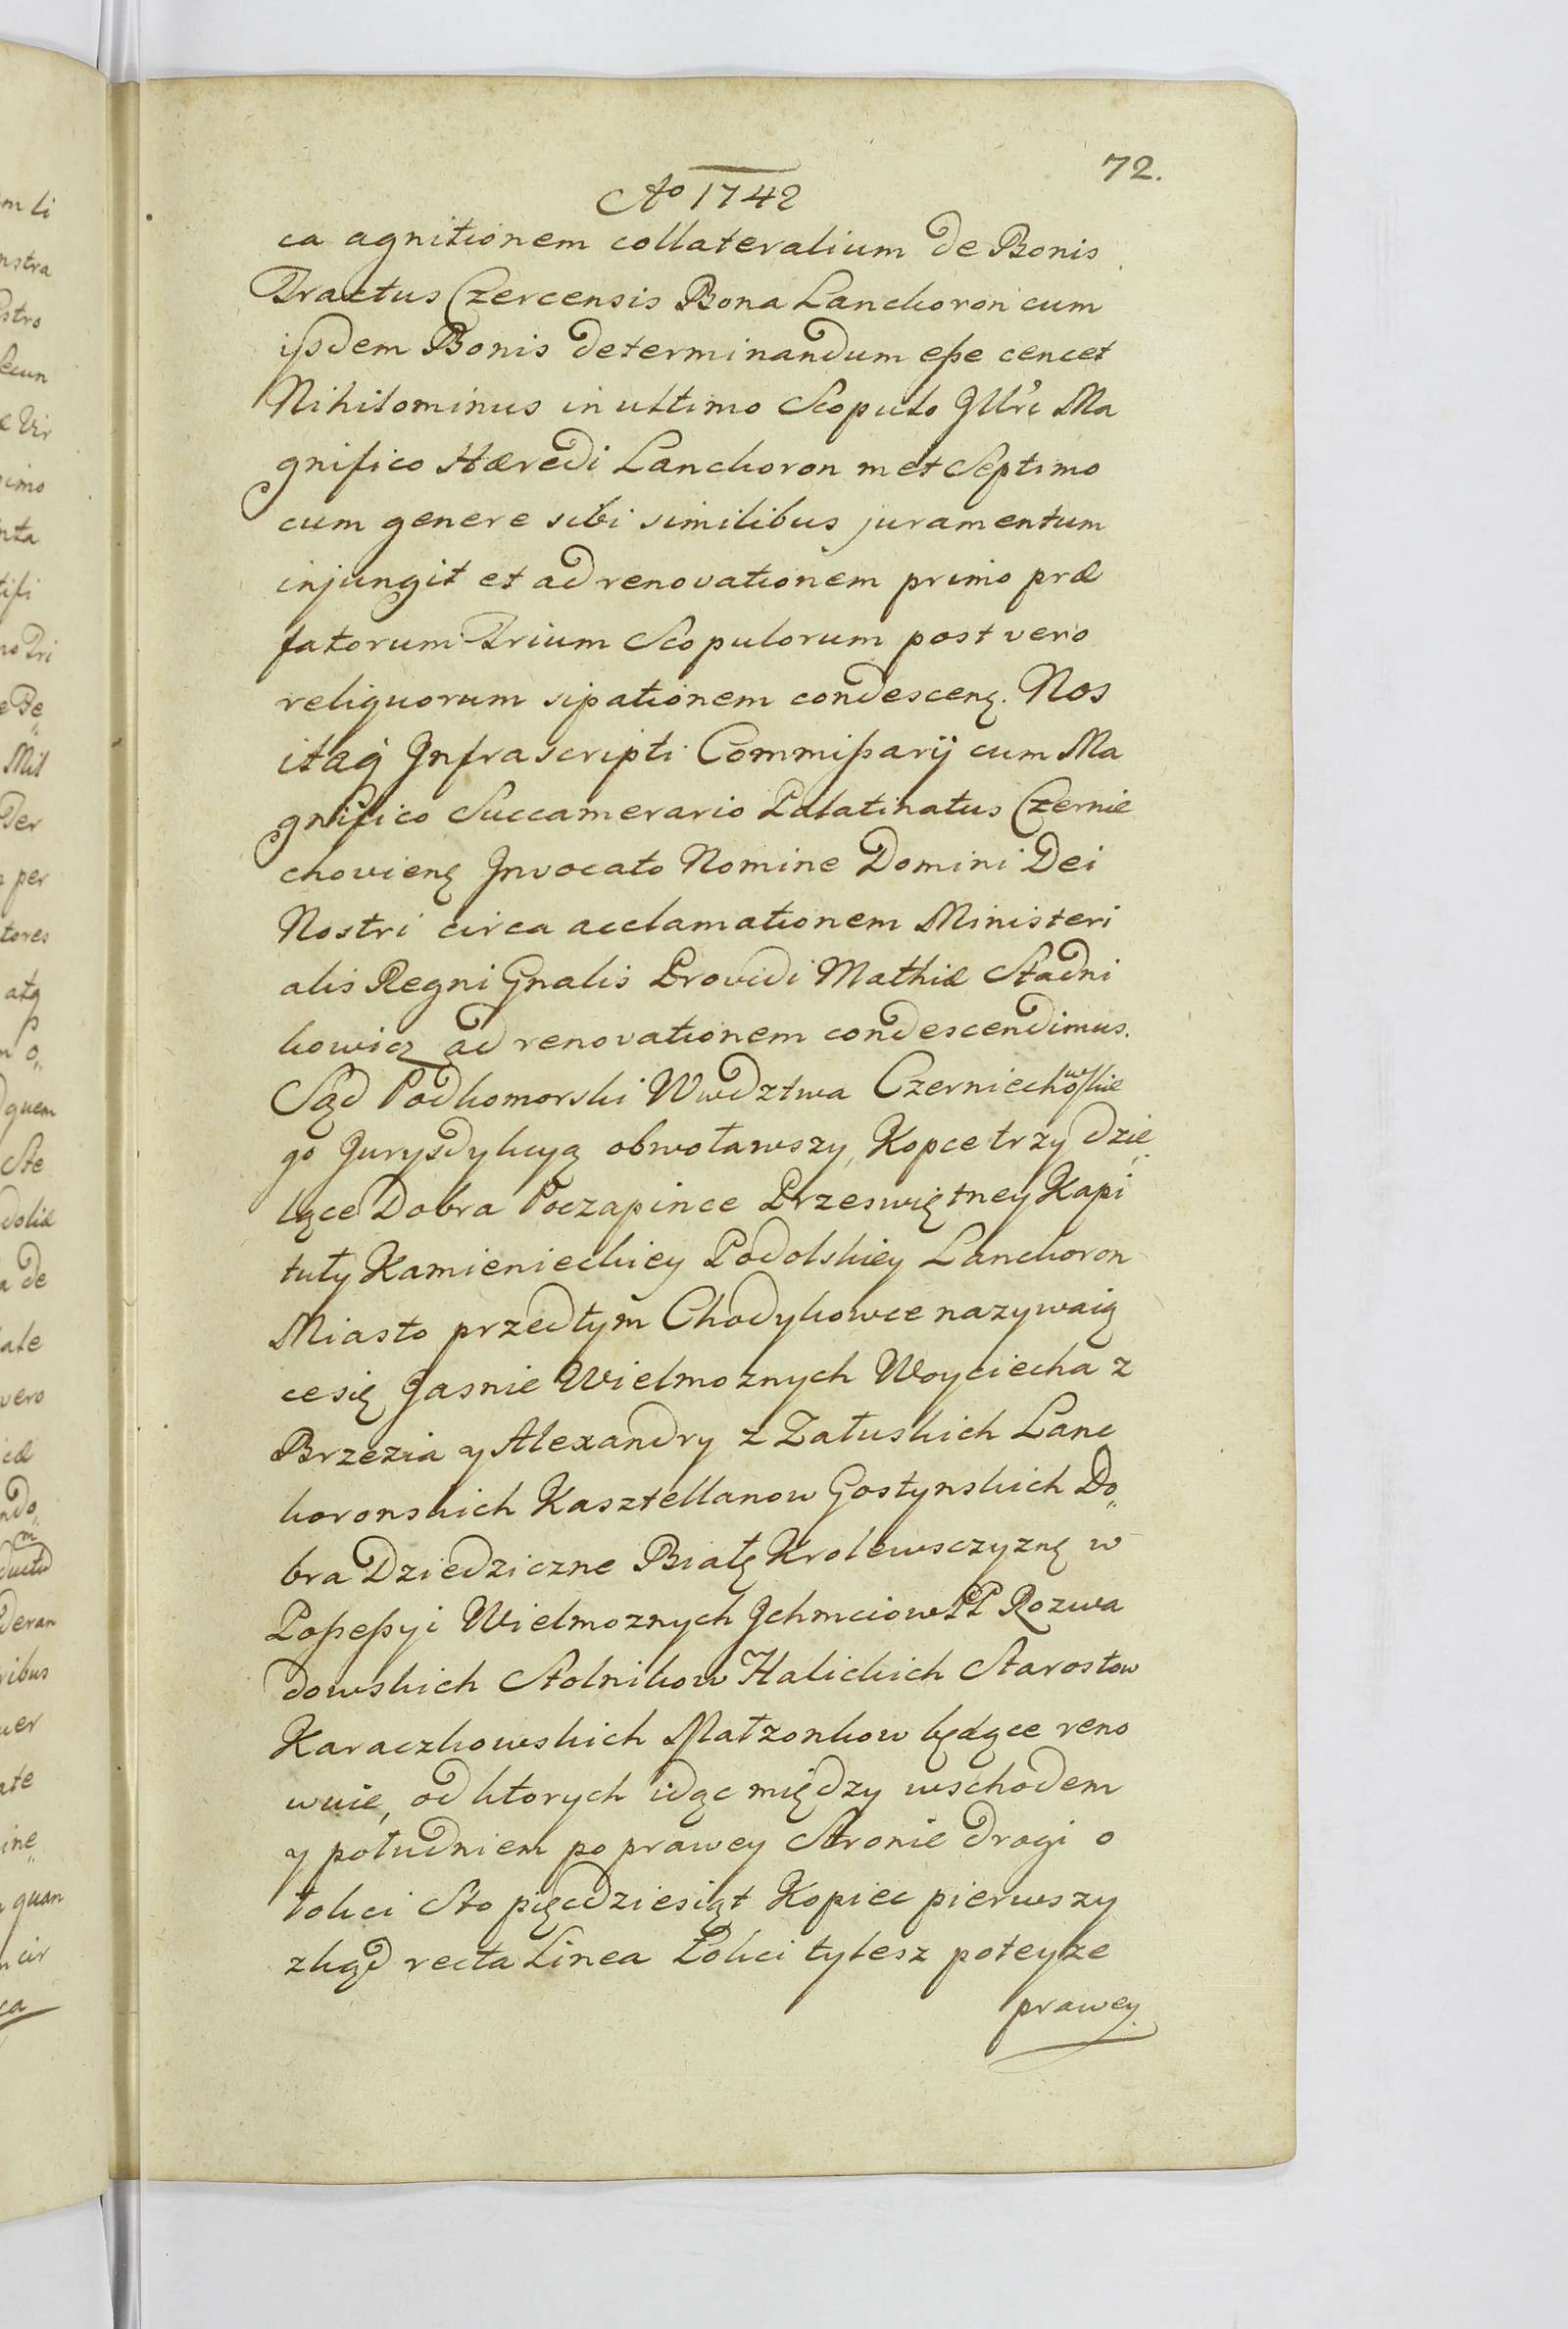 72.
Ao 1742
ca agnitionem collateralium de Bonis
Tractus Czercensis Bona Lanckoron cum
ijsdem Bonis determinandum eße cencet
Nihilominus in ultimo Scopulo Ma
gnifico Hæredi Lanckoron met Septimo
cum genere sibi similibus juramentum
injungit et ad renovationem primo præ
fatorum Trium Scopulorum post vero
reliquorum sipationem condescenꝫ. Nos
itaq́ Infrascripti Commißarij cum Ma
gnifico Succamerario Palatinatus Czernie
chovienꝫ Invocato Nomine Domini Dei
Nostri circa acclamationem Ministeri
alis Regni Gnalis Providi Mathiæ Stadni
kowicz ad renovationem condescendimus.
Sąd Podkomorski Wwdztwa Czerniechowskie
go Jurysdykcyą obwoławszy, Kopce trzy dzie„
lące Dobra Poczapince Przeswiętney Kapi
tuły Kamienieckiey Podolskiey Lanckoron
Miasto przedtym Chodykowce nazywaią
cesię Jasnie Wielmoznych Woyciecha z
Brzezia y Alexandry z Załuskich Lanc
koronskich Kasztellanow Gostynskich Do„
bra Dziedziczne Białę Krolewsczyznę w
Poßeßyi Wielmoznych Ichmciow PP Rozwa
dowskich Stolnikow Halickich Starostow
Karaczkowskich Małzonkow będące reno
wuie, od ktorych idąc między wschodem
y południem po prawey Stronie drogi o
łokci Sto pięcdziesiąt Kopiec pierwszy
zkąd recta Linea Łokci tylesz poteyze
prawey